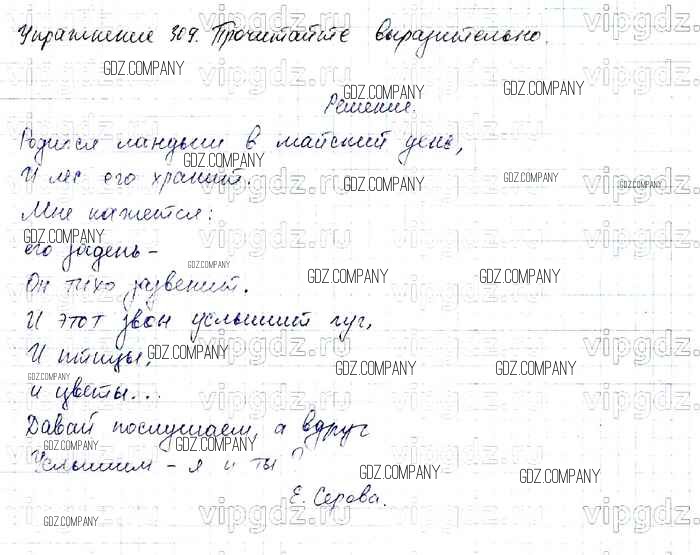 Упражнение 309. Прочитайте выразительно.
Решение.
Родился ландыш в майский день,
И лес его хранит.
Мне кажется:
его задень –
Он тихо зазвенит.
И этот звон услышит луг,
И птицы,
и цветы...
Давай послушаем, а вдруг
Услышим – я и ты?
Е. Серова.
vipgdz.ru
GDZ.COMPANY